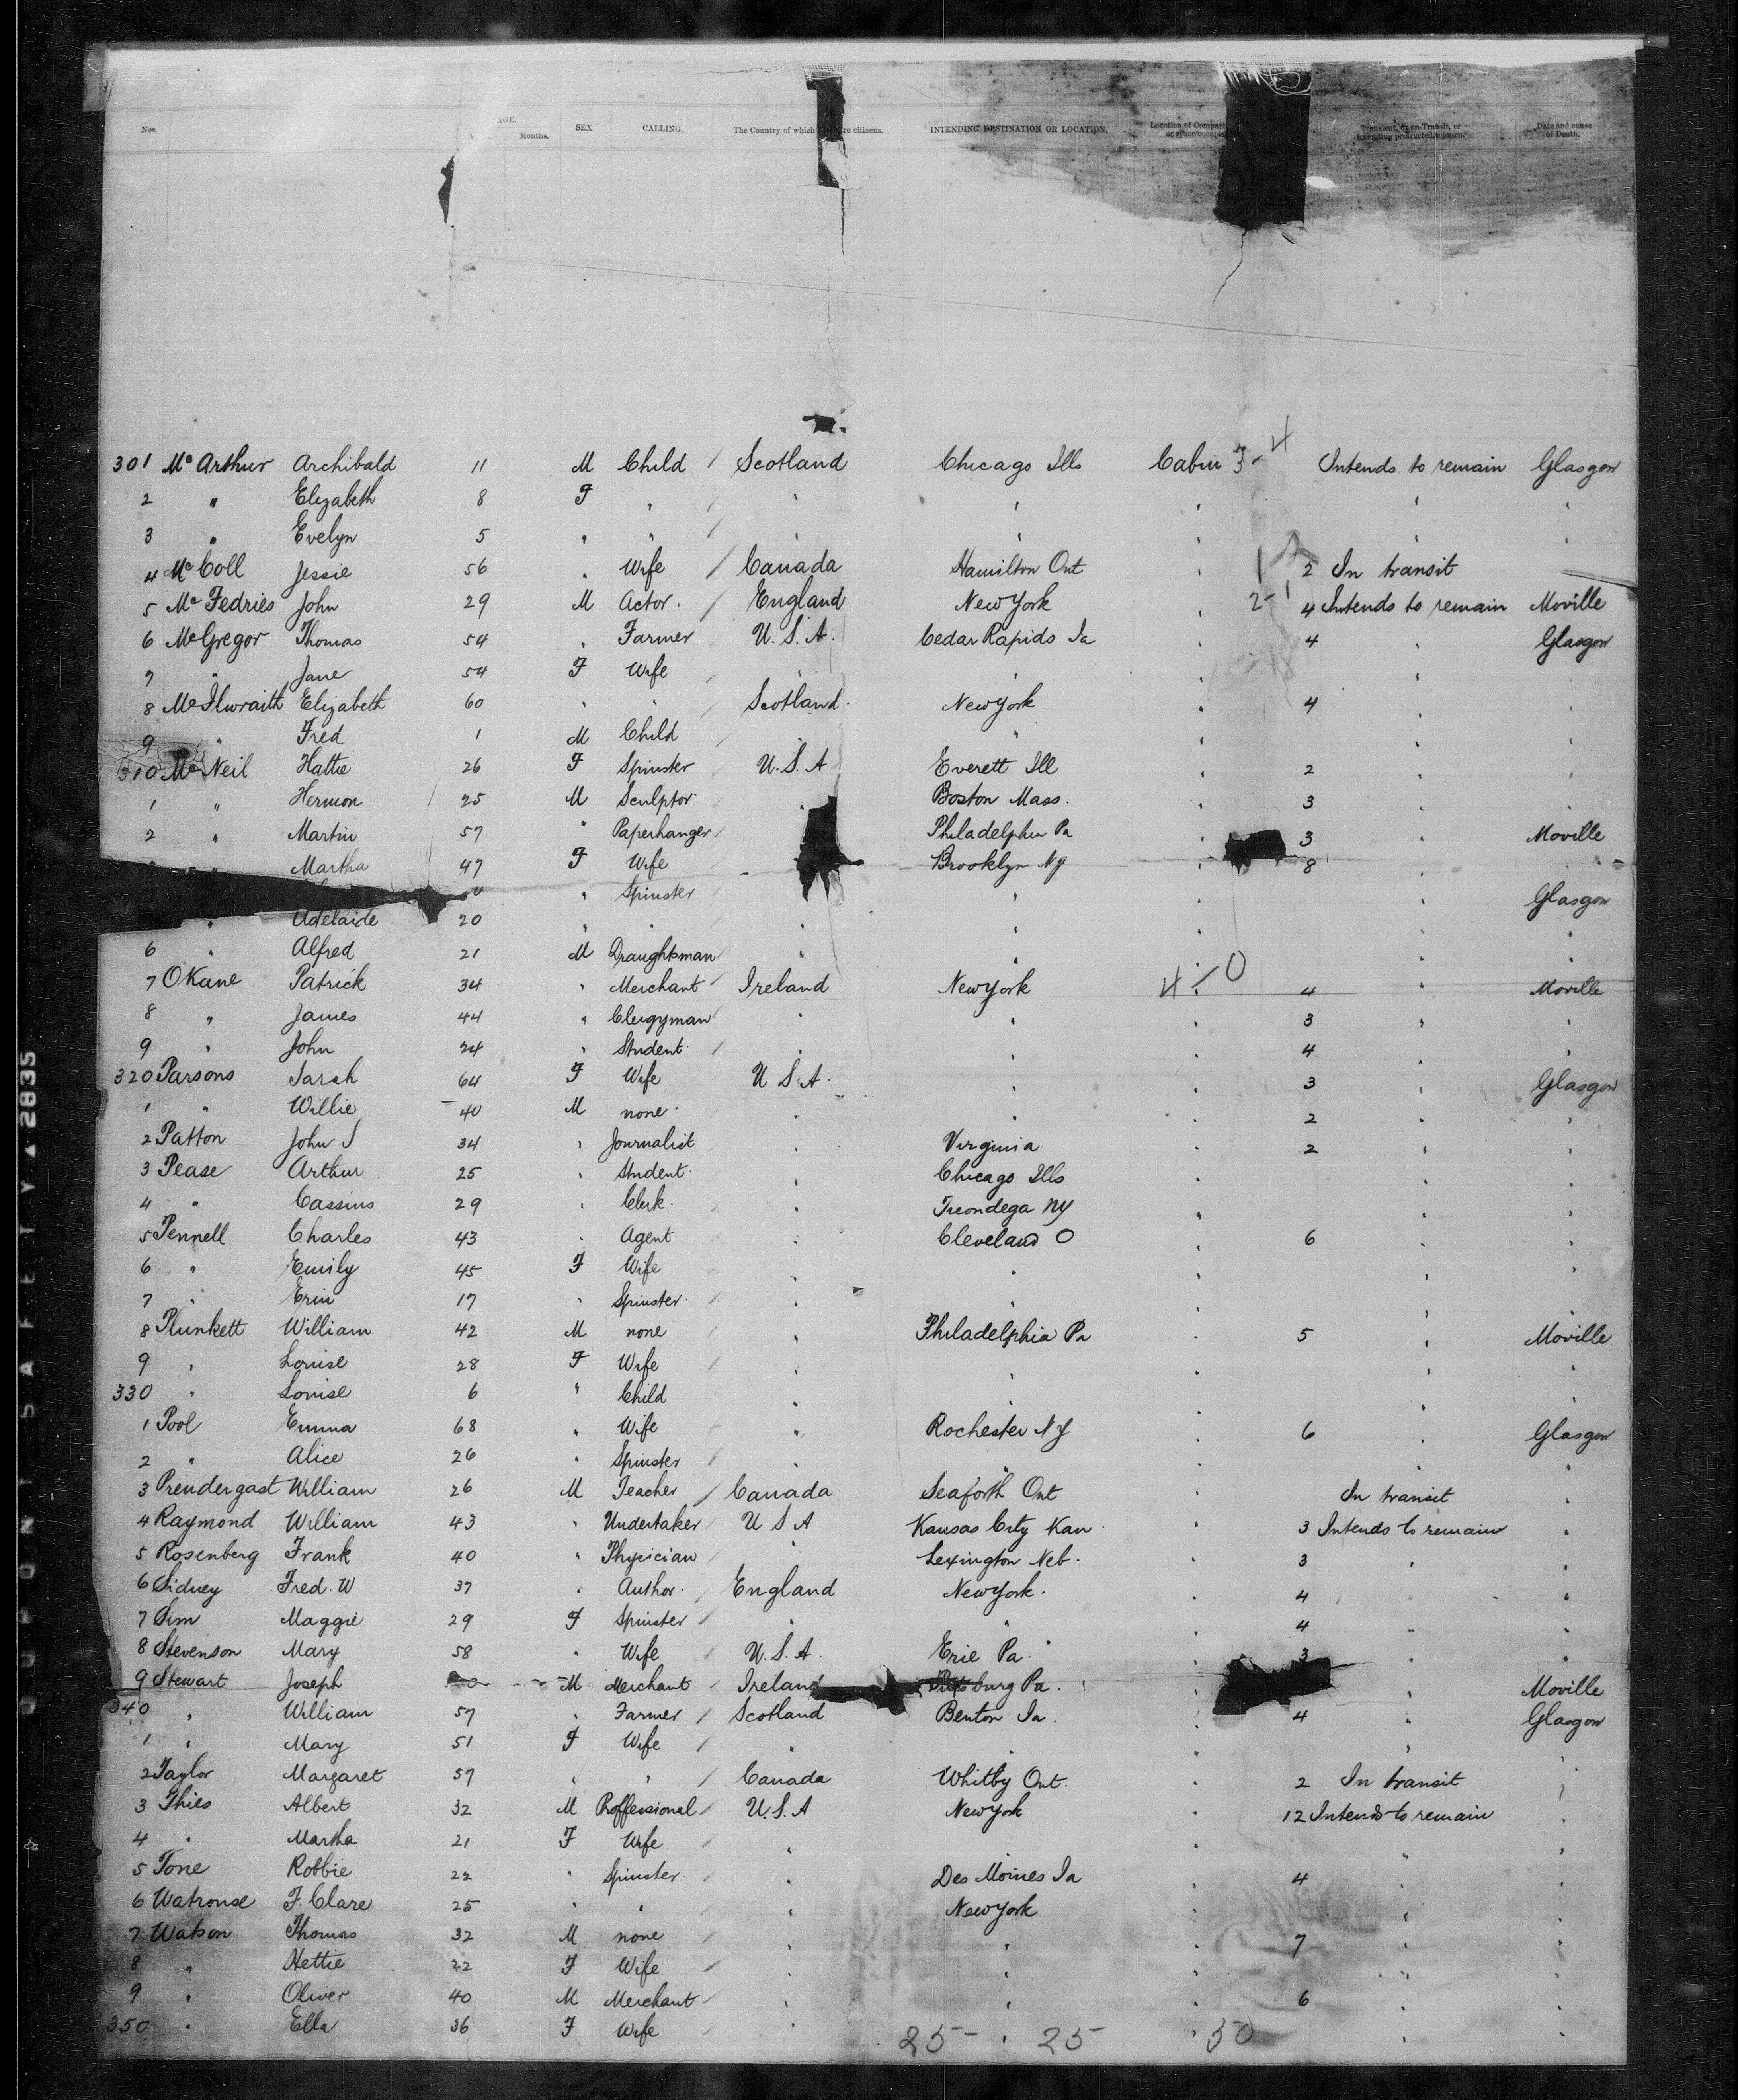 Nos. AGE. Months. SEX CALLING. The Country of which re citizens. INTENDING DESTINATION OR LOCATION. Location of Compar or space occupie Transient, or on Transit, or intending protracted sojourn. Date and cause of Death.
301 Mc Arthur Archibald 11 M Child / Scotland Chicago Ills Cabin 3 - 4 Intends to remain Glasgow
2 " Elizabeth 8 F " / " " " " "
3 " Evelyn 5 " " / " " " " "
4 Mc Coll Jessie 56 " Wife / Canada Hamilton Ont " 2 In transit
5 Mc Fedries John 29 M Actor. / England New York " 2-1 4 Intends to remain Moville
6 McGregor Thomas 54 " Farmer U.S.A. Cedar Rapids Ia 4 " Glasgow
7 " Jane 54 F Wife / " " " " "
8 McIlwraith Elizabeth 60 " " / Scotland. New York " 4 " "
9 " Fred 1 M Child / " " " "
310 McNeil Hattie 26 F Spinster / U.S.A Everett Ill " 2 " "
1 " Hermon 25 M Sculptor Boston Mass. " 3 " "
2 " Martin 57 " Paperhanger / Philadelphia Pa " 3 " Moville
" Martha 47 F Wife Brooklyn NY " 8 " "
" Spinster " " " Glasgow
" Adelaide 20 " " " " " "
6 " Alfred 21 M Draughtsman / " " " " "
7 OKane Patrick 34 " Merchant / Ireland New York 4-0 4 " Moville
8 " James 44 " Clergyman / " " " 3 " "
9 " John 24 " Student / " " " 4 " "
320 Parsons Sarah 64 F Wife U S A. " " 3 " Glasgow
1 " Willie 40 M none " " " 2 " "
2 Patton John S 34 " Journalist " Virginia " 2 " "
3 Pease Arthur 25 " Student " Chicago Ills " " "
4 " Cassius 29 " Clerk. " Ticondega NY " " "
5 Pennell Charles 43 " Agent " Cleveland O " 6 " "
6 " Emily 45 F Wife " " " " "
7 " Erin 17 " Spinster / " " " " "
8 Plunkett William 42 M none / " Philadelphia Pa " 5 " Moville
9 " Louise 28 F Wife / " " " " "
330 " Louise 6 " Child " " " " "
1 Pool Emma 68 " Wife / " Rochester NY " 6 " Glasgow
2 " Alice 26 " Spinster / " " " " "
3 Prendergast William 26 M Teacher / Canada Seaforth Ont " In transit "
4 Raymond William 43 " Undertaker / U S A Kansas City Kan " 3 Intends to remain "
5 Rosenberg Frank 40 " Physician / " Lexington Neb. " 3 " "
6 Sidney Fred. W 37 " Author. / England New York. " 4 " "
7 Sim Maggie 29 F Spinster / " " " 4 " "
8 Stevenson Mary 58 " Wife / U.S.A. Erie Pa. " 3 " "
9 Stewart Joseph M Merchant / Ireland burg Pa. " " Moville
340 " William 57 " Farmer / Scotland Benton Ia. " 4 " Glasgow
1 " Mary 51 F Wife / " " " " "
2 Taylor Margaret 57 " " / Canada Whitby Ont. " 2 In transit "
3 Thies Albert 32 M Proffessional / U.S.A New York " 12 Intends to remain "
4 " Martha 21 F Wife / " " " " "
5 Tone Robbie 22 " Spinster. / " Des Moines Ia " 4 " "
6 Watrouse F. Clare 25 " " / " New York " " "
7 Watson Thomas 32 M none / " " " 7 " "
8 " Hettie 22 F Wife / " " " " "
9 " Oliver 40 M Merchant / " " " 6 " "
350 " Ella 36 F Wife / " " " " "
25 - 25 50
DUPONT SAFETY 2835